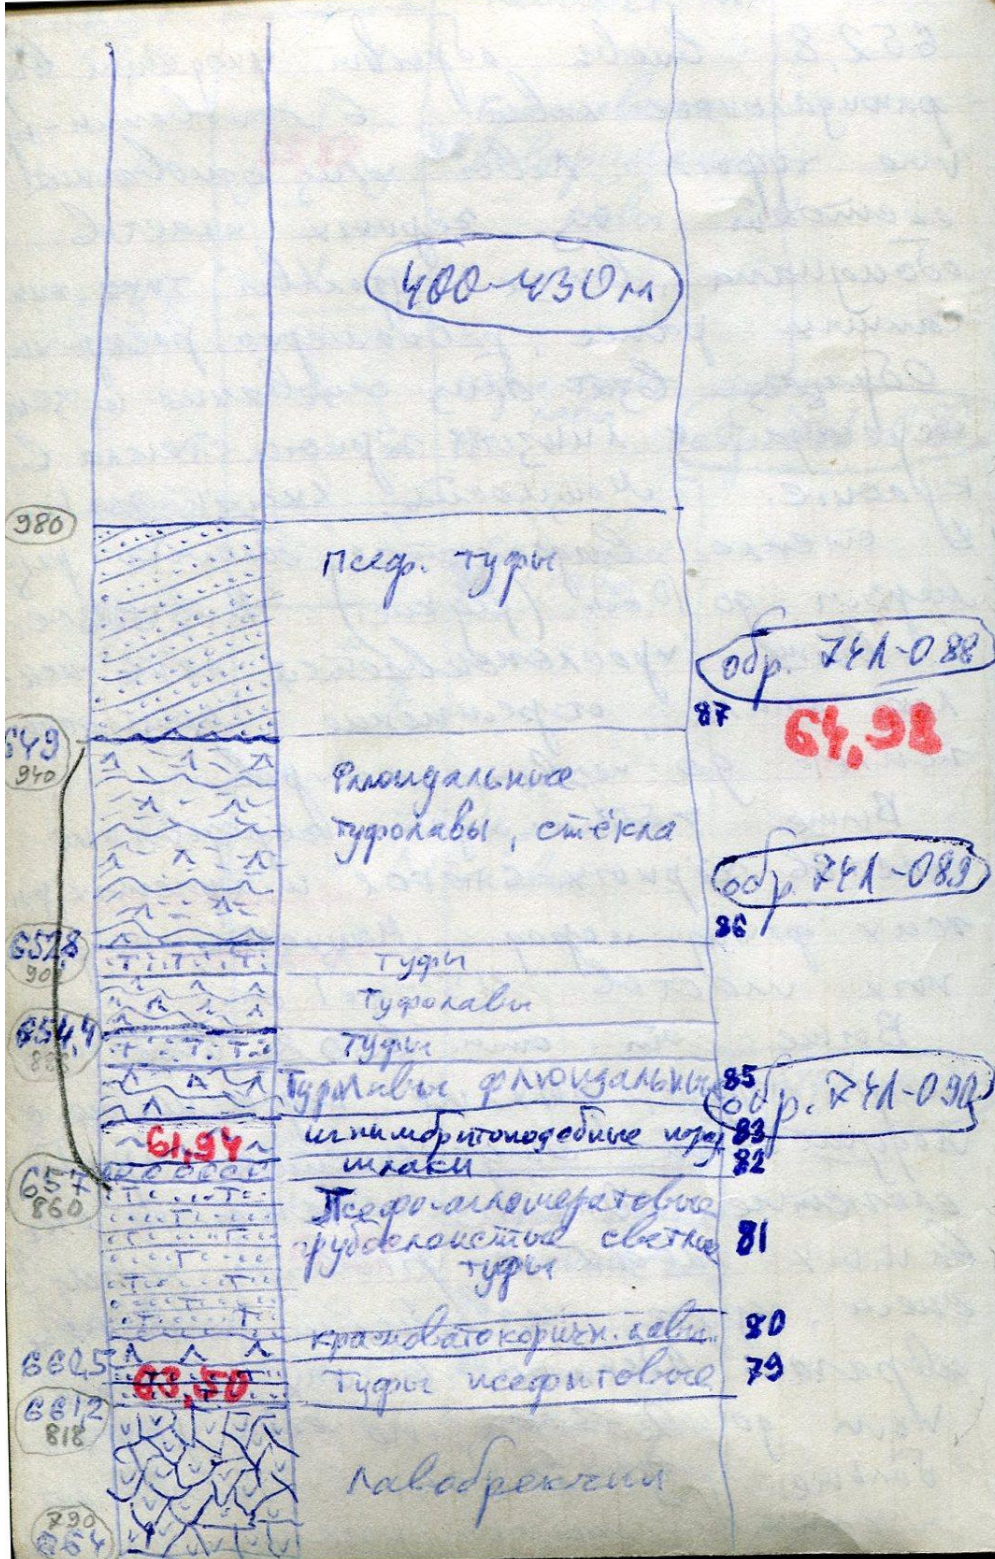 400-430 м
980
Псеф. туфы
обр. 74Л-088
87
64,98
649
940
Флюидальные
туфолавы, стёкла
обр. 74Л-089
86
652,8
90
туфы
Туфолавы
654,4
88
туфы
Туфолавы флюидальные
85
обр. 74Л-090
61,94
игнимбритоподобные пород
83
шлаки
82
657
860
Псефо-агломератовые
грубослоистые светлые
81
туфы
красноватокоричн. лавы
80
660,5
63,50
Туфы псефитовые
79
661,2
818
Лавобрекчии
790
664